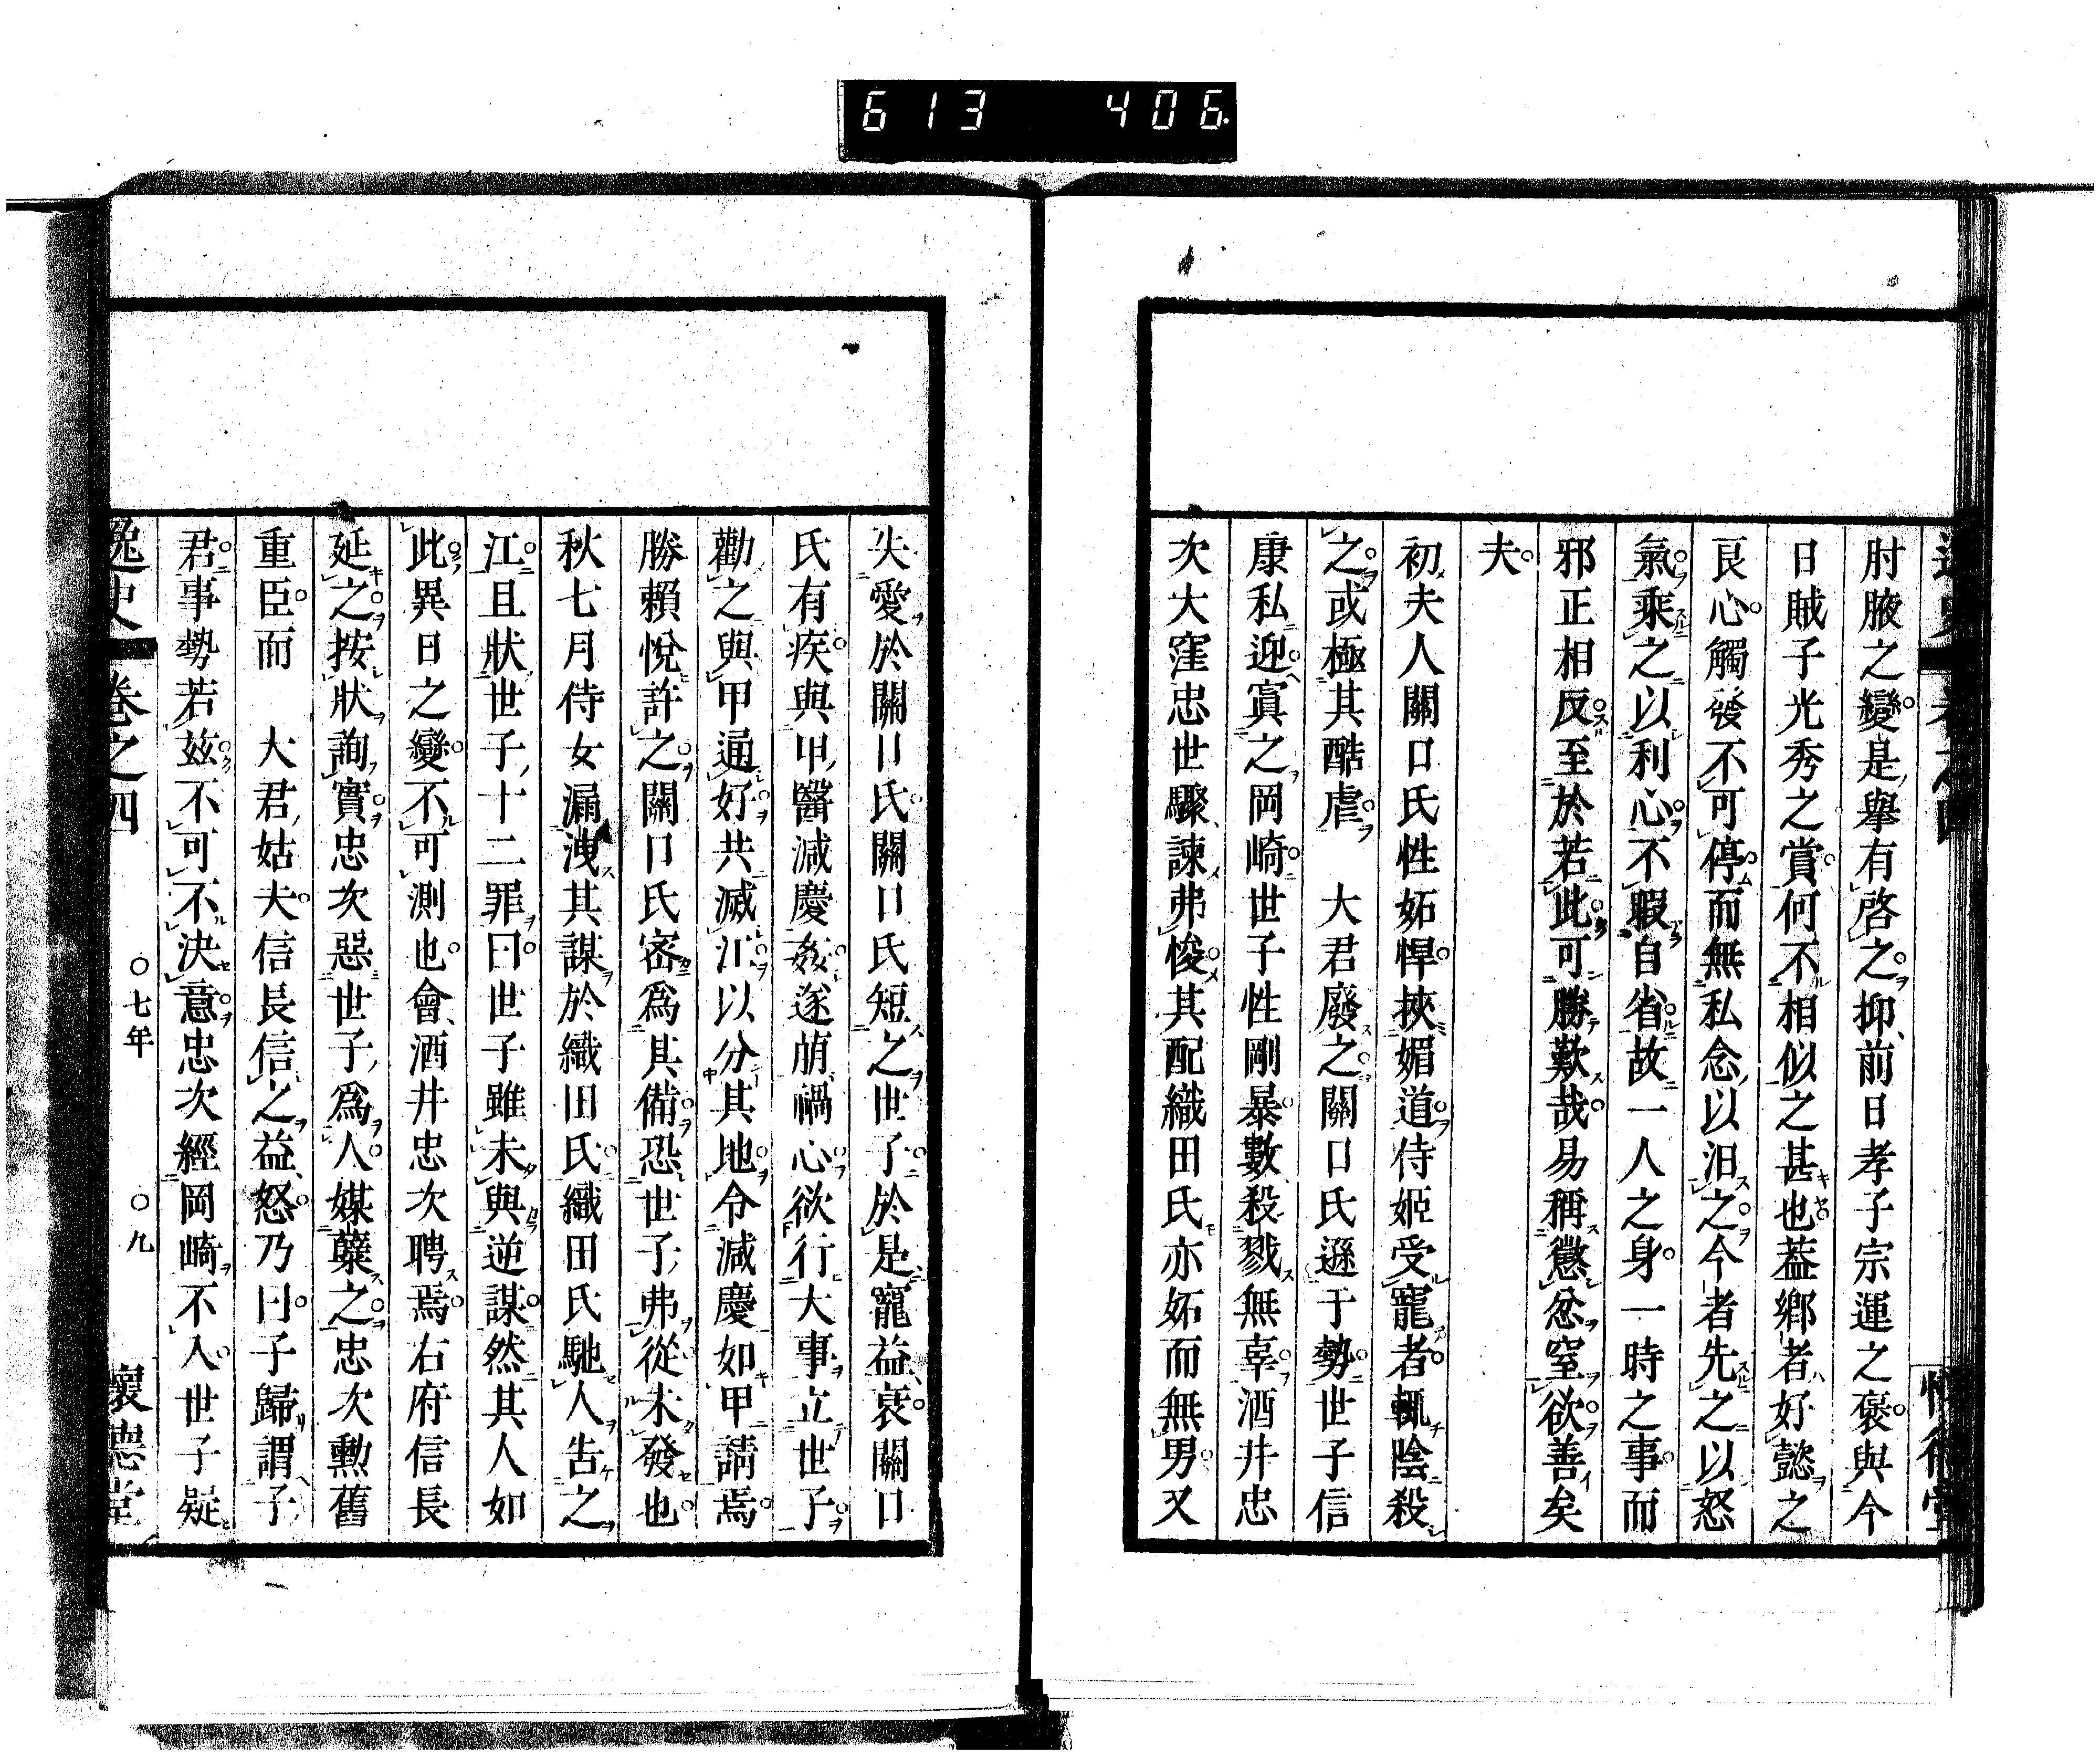 613 406
肘腋之變是舉有啓之抑前日孝子宗運之褒與今
日賊子光秀之賞何不相似之甚也葢鄕者好懿之
良心觸發不可停而無私念以汨之今者先之以怒
氣乘之以利心不暇自省故一人之身一時之事而
邪正相反至於若此可勝歎哉易稱懲忿窒欲善矣
夫
初夫人關口氏性妬悍挾媚道侍姬受寵者輒陰殺
之或極其酷虐　大君廢之關口氏遜于勢世子信
康私迎寘之岡崎世子性剛暴數殺戮無辜酒井忠
次大窪忠世驟諫弗悛其配織田氏亦妬而無男又
失愛於關口氏關口氏短之世子於是寵益衰關口
氏有疾與甲醫減慶姦遂萠禍心欲行大事立世子
勸之與甲通好共滅江以分其地令減慶如甲請焉
勝賴悅許之關口氏密爲其備恐世子弗從未發也
秋七月侍女漏洩其謀於織田氏織田氏馳人告之
江且狀世子十二罪曰世子雖未與逆謀然其人如
此異日之變不可測也會酒井忠次聘焉右府信長
延之按狀詢實忠次惡世子爲人媒蘖之忠次勳舊
重臣而　大君姑夫信長信之益怒乃曰子歸謂子
君事勢若玆不可不決意忠次經岡崎不入世子疑
逸史　卷之四　○七年　○九　懷德堂